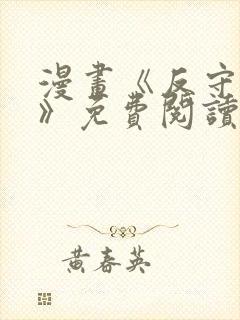 漫畫《反守
》免費閱讀
黃春英